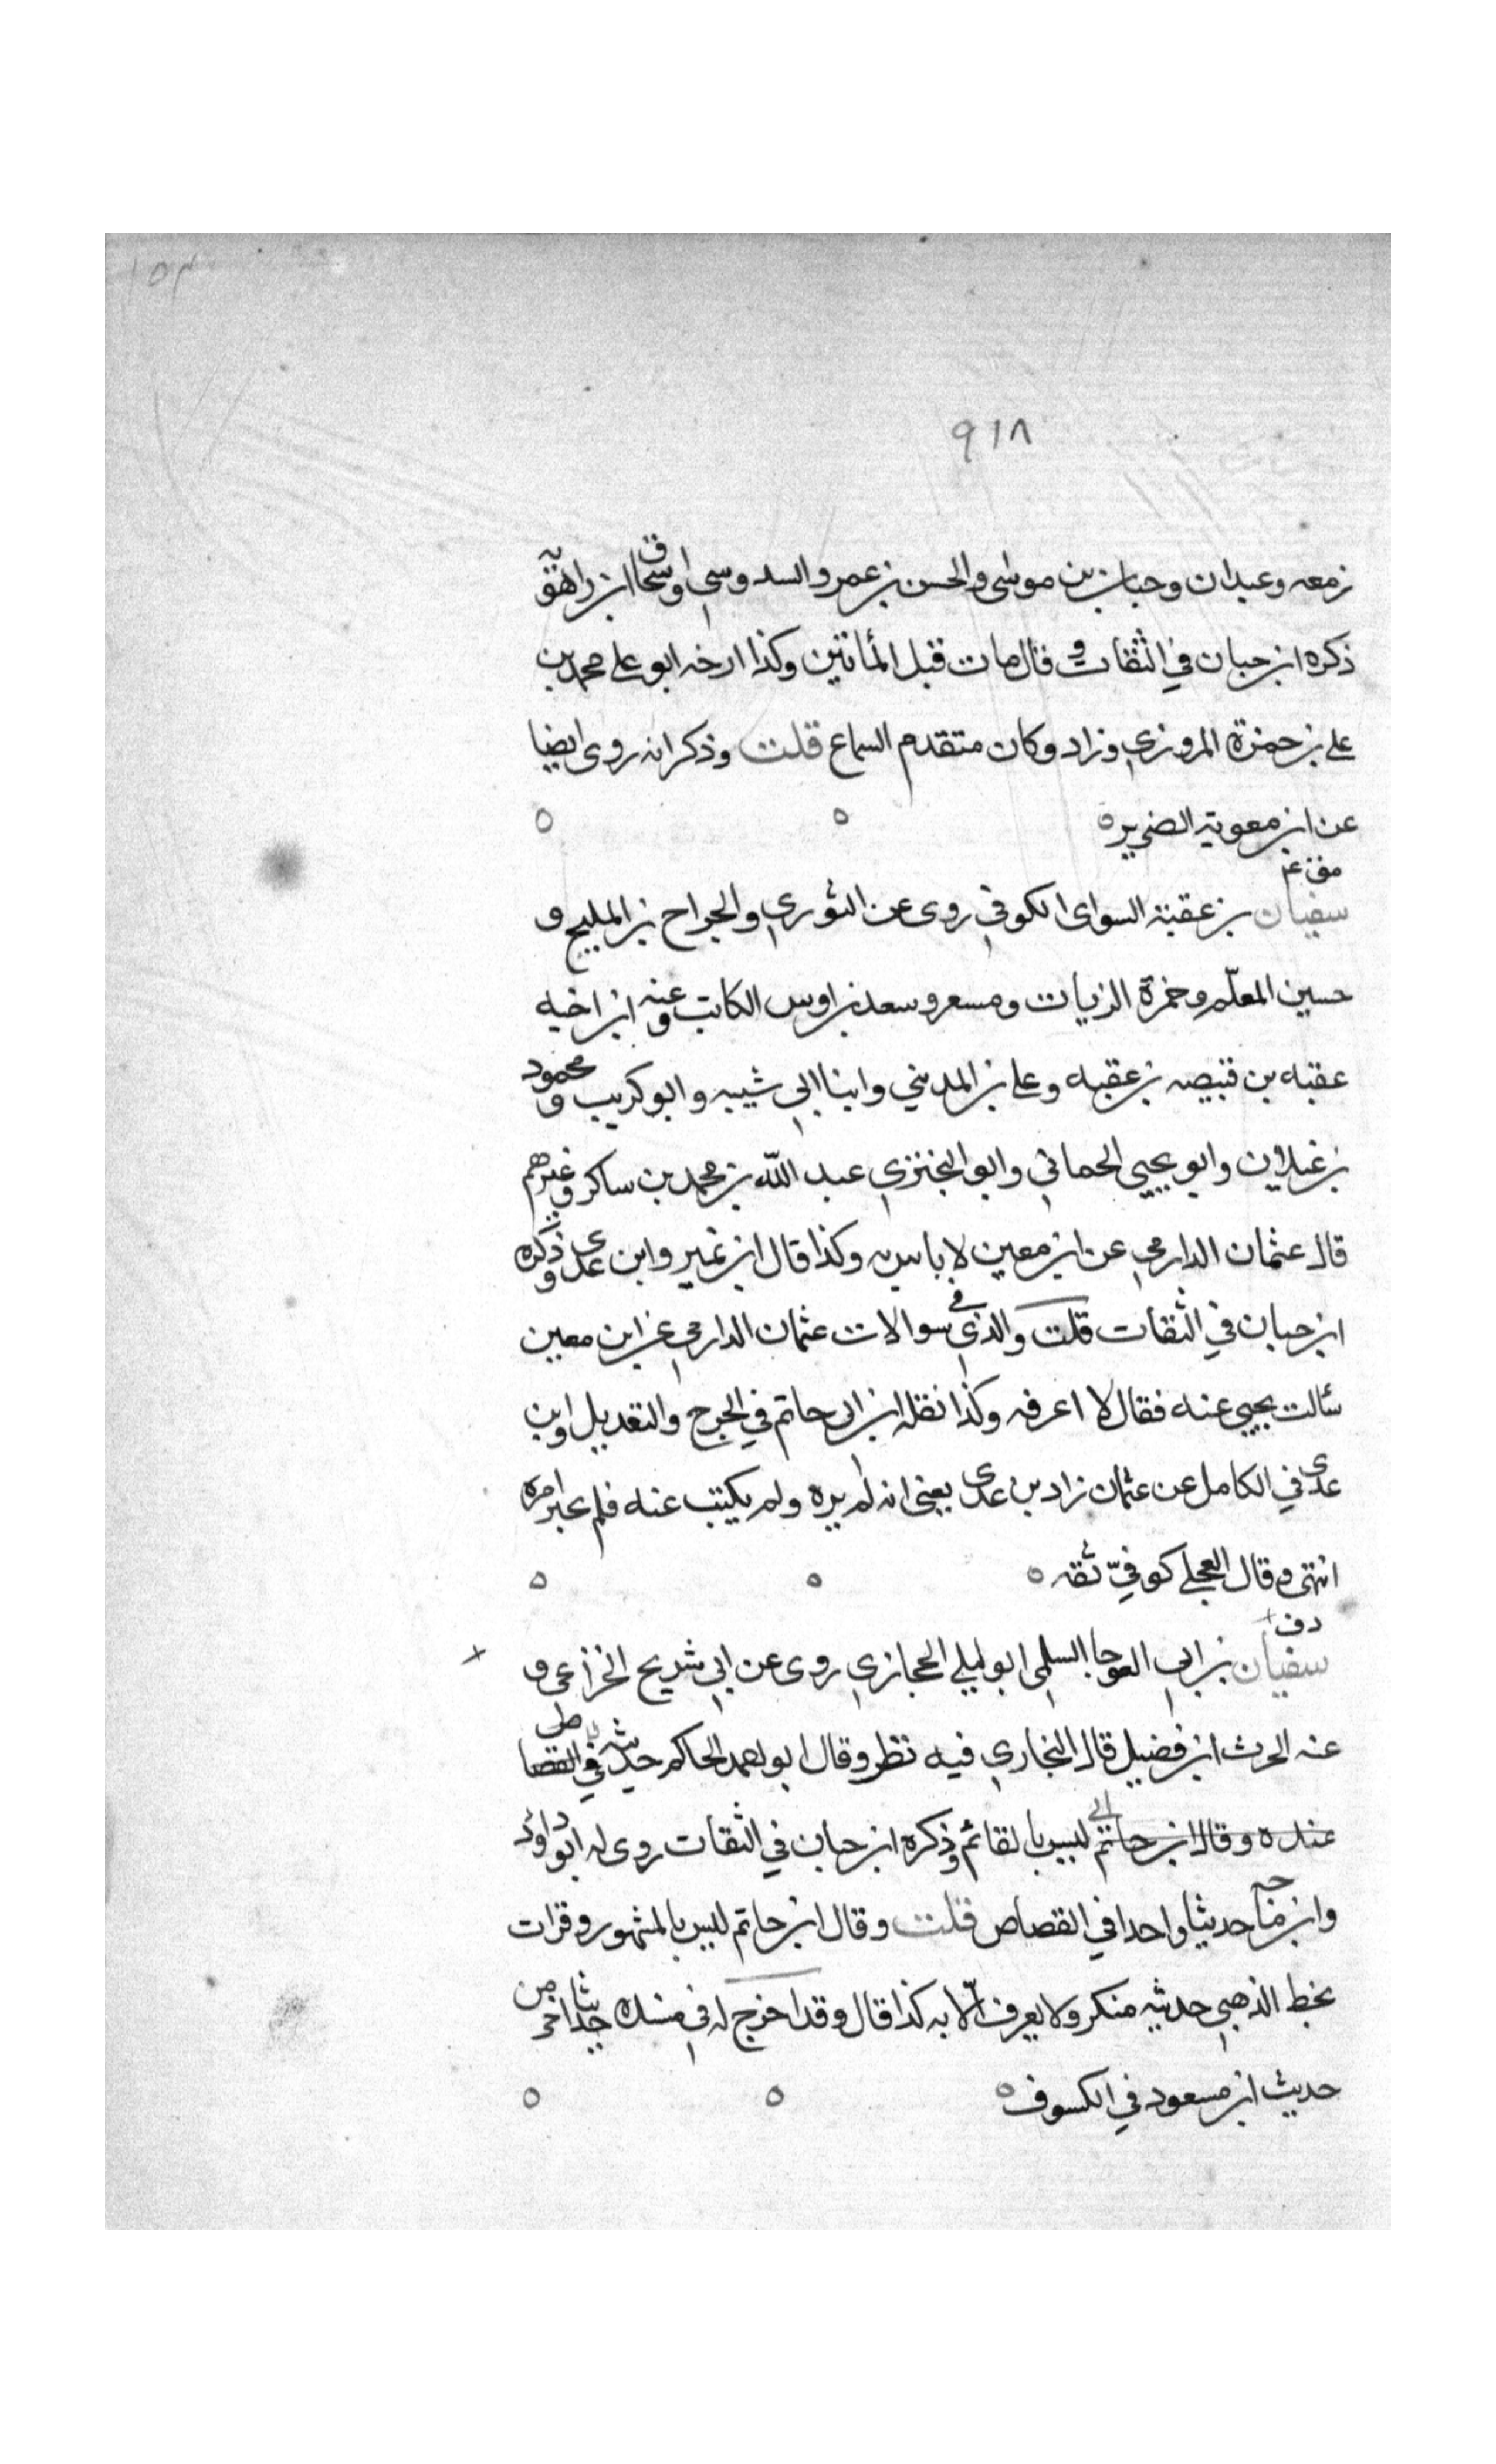 ٩١٨
زمعه وعبدان وحبان بن موسى والحسن بن عمرو السدوسي واسحاق ابن راهويه
ذكره ابن حبان في الثقات وقال مات قبل المأتين وكذا ارخه ابو علي محمد بن
علي بن حمزة المروزي وزاد وكان متقدم السماع قلت وذكر انه روى ايضا
عن ابن معوية الضرير ه
سفيان بن عقبة السواى الكوفي روى عن الثوري والجراح بن المليح و
حسين المعلّم وحمزة الزيات ومسعر وسعد بن اوس الكاتب وعنه ابن اخيه
عقبه بن قبيصه بن عقبه وعلي بن المديني وابنا ابي شيبه وابو كريب ومحمود
بن غيلان وابو يحيى الحماني وابو البختري عبد الله بن محمد بن ساكر وغيرهم
قال عثمان الدارمي عن ابن معين لا باس به وكذا قال ابن نمير وابن عدى وذكره
ابن حبان في الثقات قلت والذي في سوالات عثمان الدارمي عن ابن معين
سألت يحيى عنه فقال لا اعرفه وكذا نقله ابن ابى حاتم في الجرح والتعديل وابن
عدى في الكامل عن عثمان زاد بن عدى يعنى انه لم يره ولم يكتب عنه فلم يخبر امره
انتهى وقال العجلي كوفيّ ثقه ه
دف
سفيان بن ابي العوجا السلمى ابو ليلي الحجازي روى عن ابي شريح الخزاعى و
عنه الحرث ابن فضيل قال البخاري فيه نظر وقال ابو احمد الحاكم حديثه في القصاص
عنده وقال ابن ابي حاتم ليس بالقائم وذكره ابن حبان في الثقات روى له ابو داود
وابن ماجه حديثا واحدا في القصاص قلت وقال ابن حاتم ليس بالمشهور وقرات
بخط الذهبي حديثه منكر ولا يعرف الّا به كذا قال وقد اخرج له في مسنده حديثا اخر من
حديث ابن مسعود في الكسوف ه